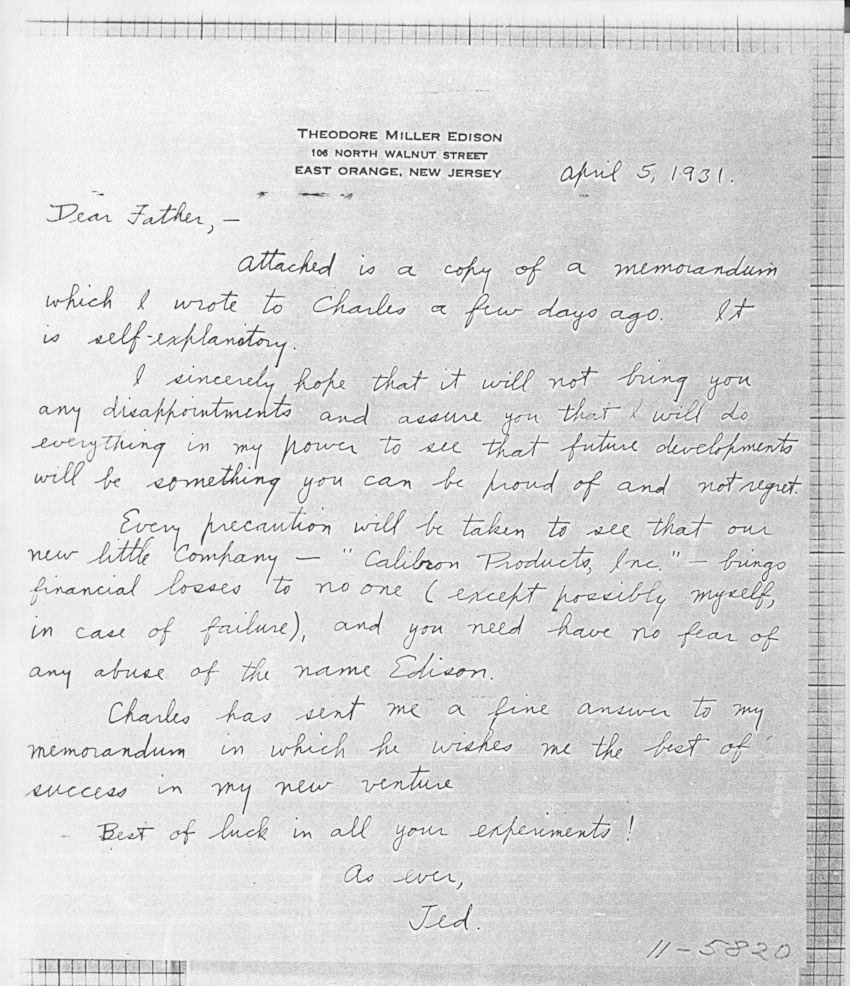 THEODORE MILLER EDISON
106 NORTH WALNUT STREET
EAST ORANGE, NEW JERSEY
April 5, 1931.
Dear Father, —
Attached is a copy of a memorandum
which I wrote to Charles a few days ago. It
is self-explanatory.
I sincerely hope that it will not bring you
any disappointments and assure you that I will do
everything in my power to see that future developments
will be something you can be proud of and not regret.
Every precaution will be taken to see that our
new little Company — "Calibron Products, Inc." — brings
financial losses to no one (except possibly myself,
in case of failure), and you need have no fear of
any abuse of the name Edison.
Charles has sent me a fine answer to my
memorandum in which he wishes me the best of
success in my new venture
Best of luck in all your experiments!
As ever,
Ted.
11-5820